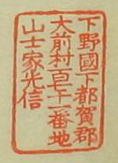 下野國下都賀郡
大前村百七十二番地
山士家光信